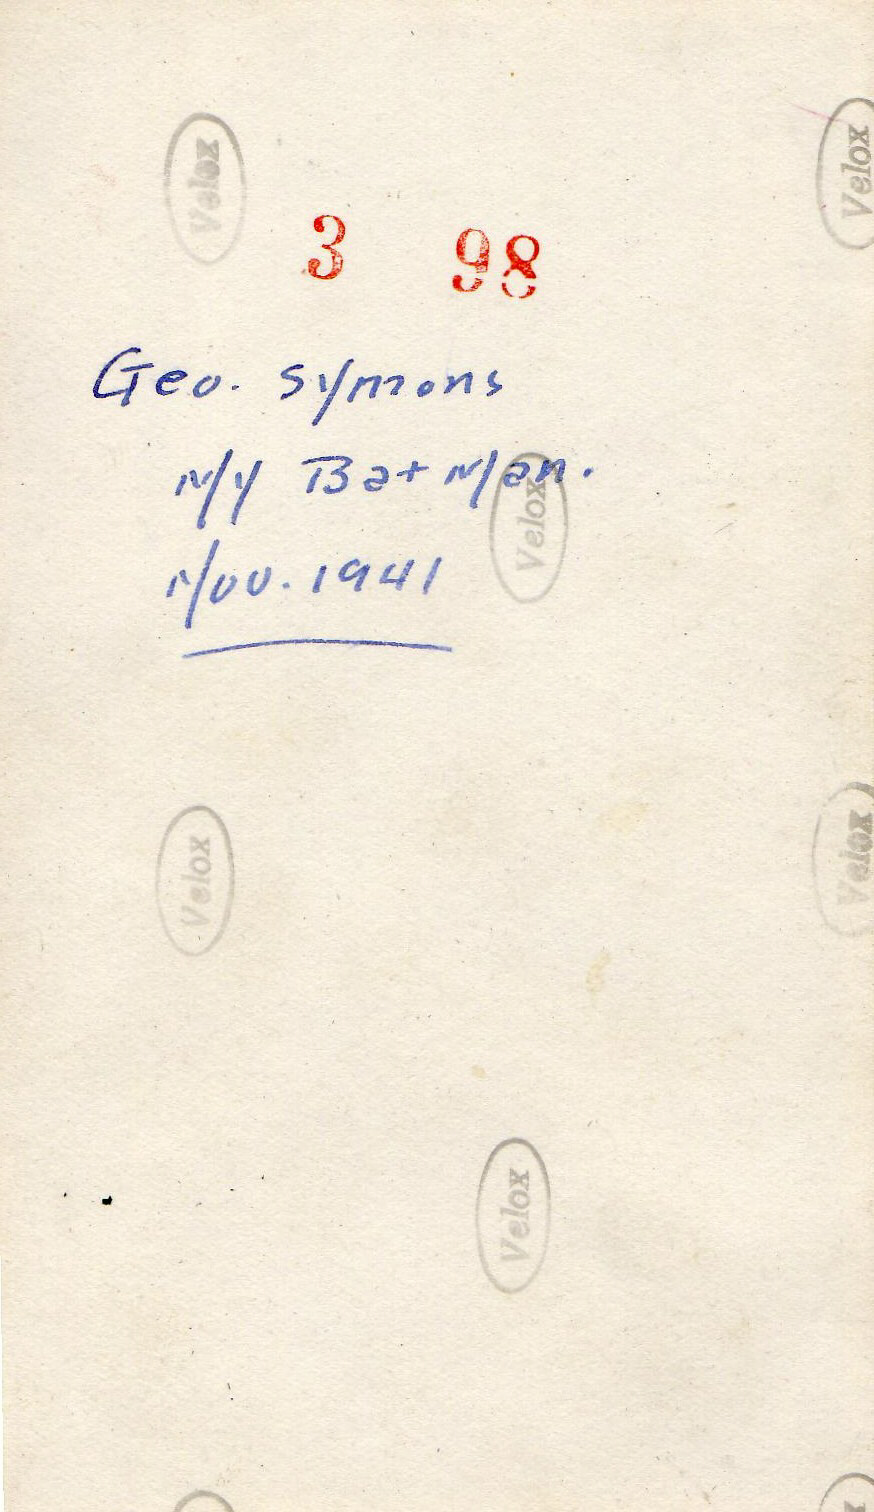 Velox
Velox
3 98
Geo. Symons
My Bat Man.
Velox
Nov. 1941
Velox
Velox
Velox